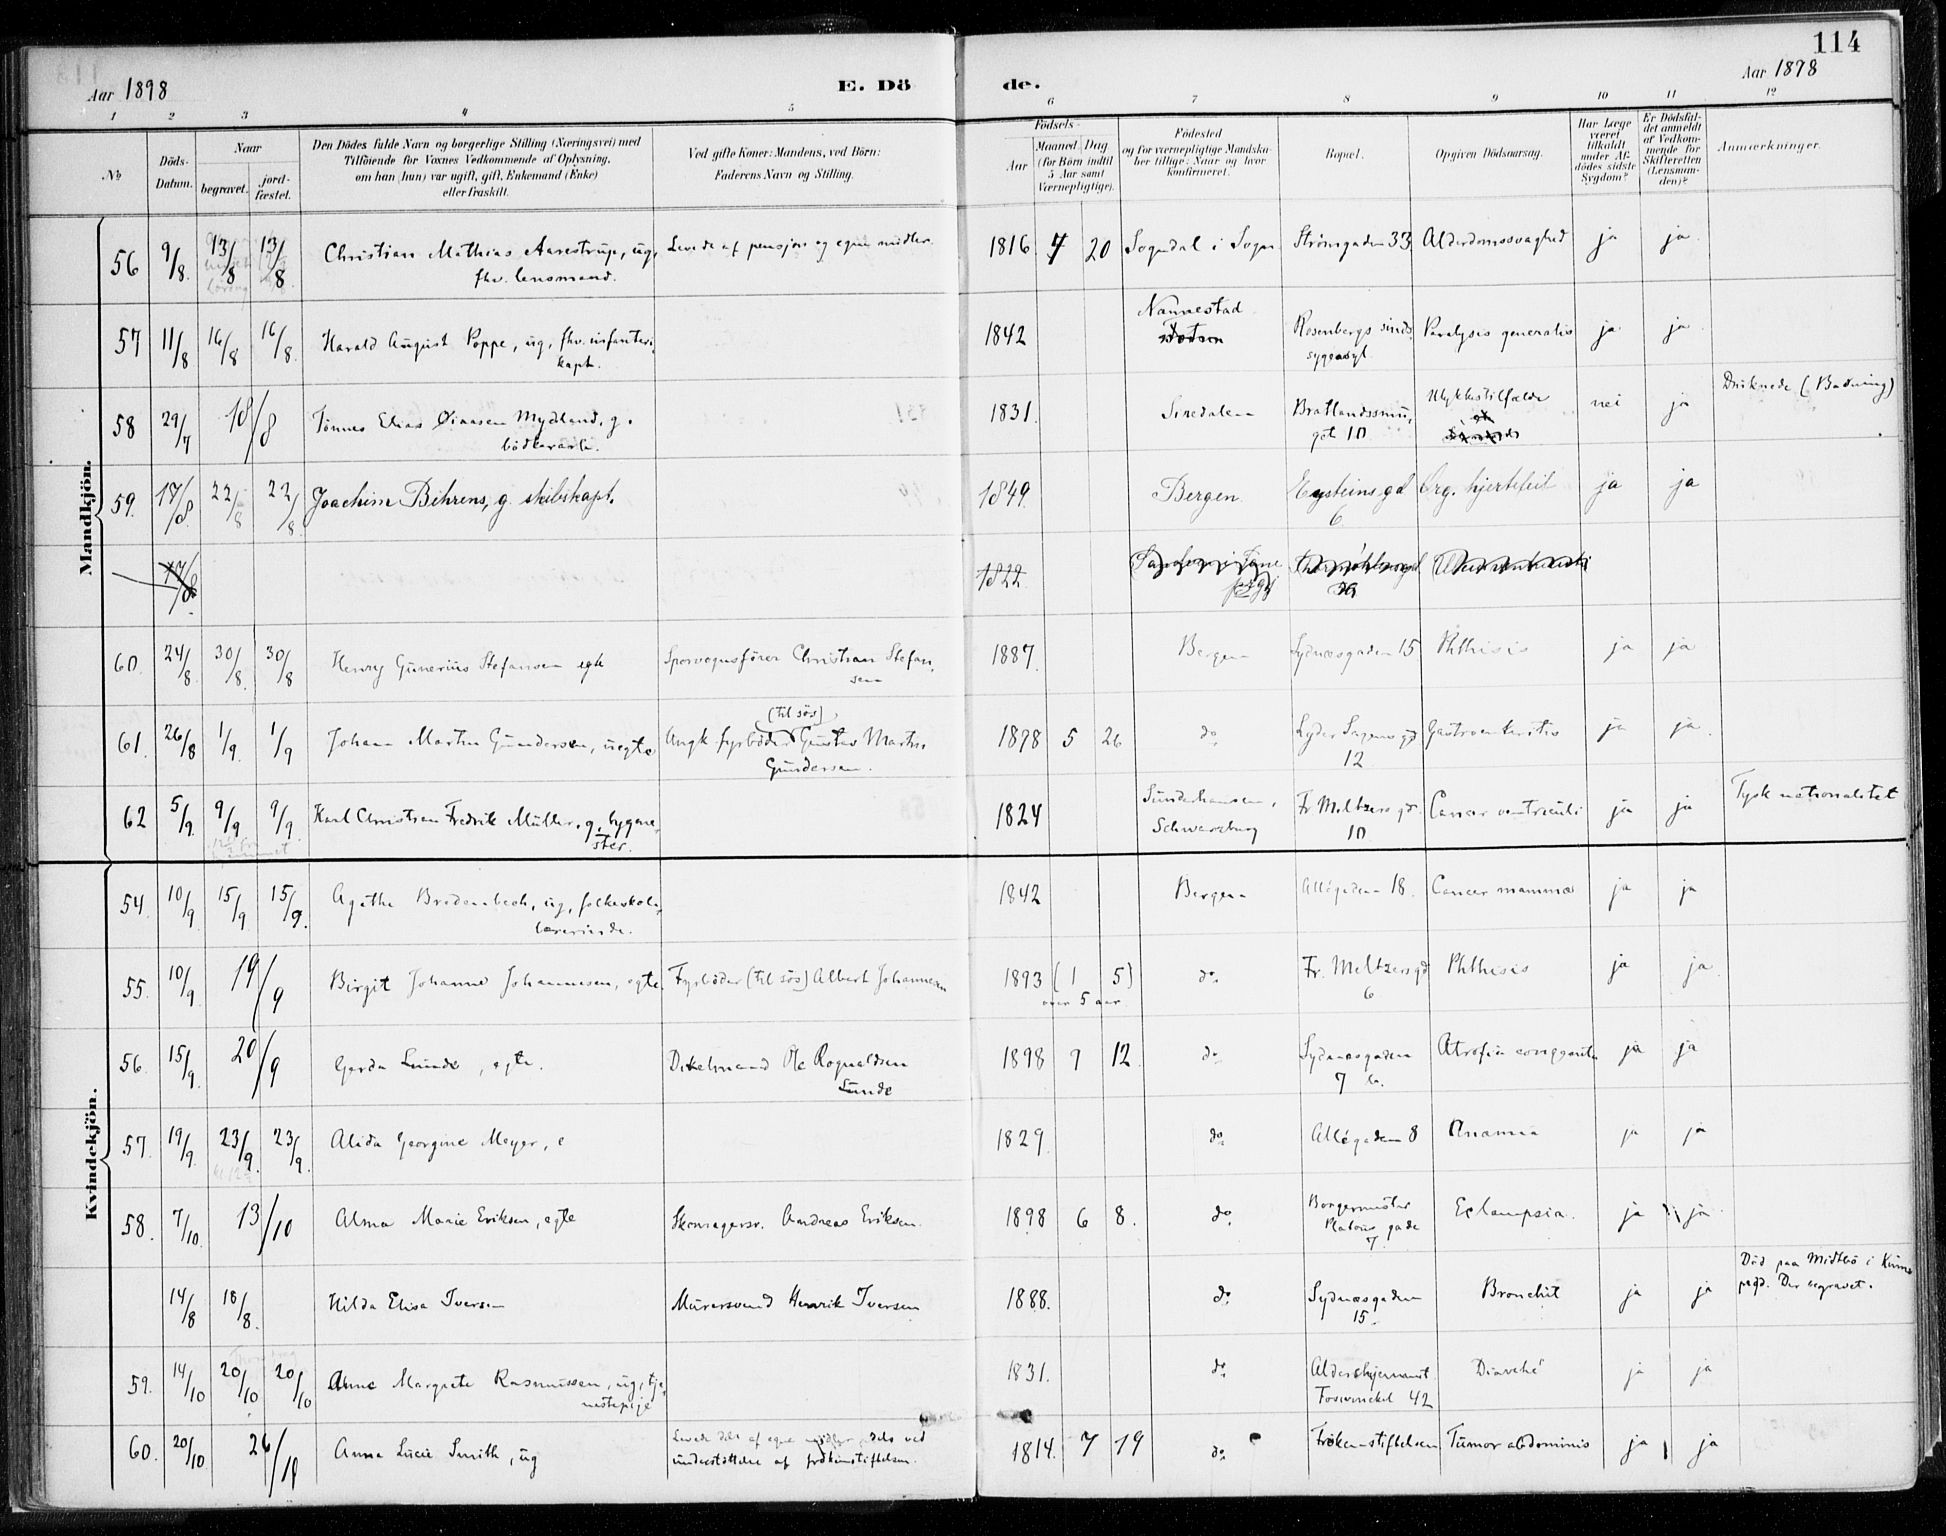 114
Aar 1898
E. Dö
de.
Aar 1898
1 2 3 4 5 6 7 8 9 10 11 12
No
Döds-Datum.
Naar
begravet.
jord-fæstet.
Den Dödes fulde Navn og borgerlige Stilling (Næringsvei) med
Tilföiende for Voxnes Vedkommende af Oplysning,
om han (hun) var ugift, gift, Enkemand (Enke)
eller fraskilt.
Ved gifte Koner: Mandens, ved Börn:
Faderens Navn og Stilling.
Födsels-
Aar
Maaned Dag
(for Börn indtil
5 Aar samt
Værnepligtige).
Födested
og for værnepligtige Mandska-
ber tillige: Naar og hvor
konfirmeret.
Bopæl.
Opgiven Dödsaarsag.
Har Læge
været
tilkaldt
under Af-
dödes sidste
Sygdom?
Er Dödsfal-
det anmeldt
af Vedkom-
mende for
Skifteretten
(Lensman-
den)?
Anmærkninger.
Mandkjön.
56 9/8. 13/8 13/8 Christian Mathias Aarestrup, ug, Levede af pensjon og egne midler. 1816 7 20 Sogndal i Sogn Strömgaden 33 Alderdomssvaghed ja ja.
fhv. lensmand.
57 11/8 16/8 16/8. Harald August Poppe, ug, fhv. infanteri- 1842 Nannestad Rosenbergs sinds- Paralysis generalis ja ja
kapt. sygeasyl.
58 29/7 18/8 Tönnes Elias Öiaasen Mydland, g. 1831. Siredalen Ulykkestilfælde nei ja Druknede (Badning)
bödkerarb. 10
59. 17/8 22/8 22/8 Joachim Behrens, g. skibskapt. 1849 Bergen. Eysteinsgd Org. hjertefeil ja ja
6
17/8 1822
60. 24/8. 30/8. 30/8 Henry Gunerius Stefansen egte Sporvognsförer Christian Stefan- 1887. Bergen Sydnæsgaden 15 Phthisis ja ja
sen
61. 26/8 1/9. 1/9 Johan Martin Gundersen, uegte (til sös) fyrböder Gustav Martin 1898 5 26 do Lyder Sagensgd Gastroenteritis ja ja.
Gundersen. 12
62 5/9. 9/9. 9/9. Karl Christian Fredrik Müller, g, bygme- 1824 Sunderhausen, Fr Meltzersgd. Cancer ventriculi ja ja Tysk nationalitet
ster. Schwarzburg 10
Kvindekjön.
54. 10/9. 15/9. 15/9. Agathe Bredenbech, ug, folkeskole- 1842 Bergen Allégaden 18. Cancer mammæ ja ja
lærerinde.
55. 10/9. 19/9 Birgit Johanne Johannesen, egte Fyrböder (til sös) Albert Johannesen 1893 (1 5) do Fr. Meltzersgd Phthisis ja ja.
over 5 aar 6
56. 15/9. 20/9 Gerda Sunde, egte. Dikelmand Ole Rognaldsen 1898 9 12. do Sydnæsgaden ja ja
Sunde 7
57. 19/9. 23/9. 23/9. Alida Georgine Meyer, e 1829. do Allégaden 8 Anæmia ja ja
58. 7/10. 13/10 Alma Marie Eriksen, egte Skomagersv. Andreas Eriksen. 1898 6 8. do Borgermester Eclampsia. ja ja
Platous gade
7.
14/8 18/8. Hilda Elisa Iversen Murersvend Henrik Iversen 1888. do Sydnæsgaden Bronchit ja ja Död paa Midtbö i Kinns
15. pgd. Der begravet.
59. 14/10 20/10 20/10 Anne Margrete Rasmussen, ug, tje- 1831. do Aldershjemmet Diarrhé ja ja
nestepige Fosswinckel 42
60. 20/10. 26/10 Anna Lucie Smith, ug Levede dels af egne midler, dels ved 1814. 7 19 do Frökenstiftelsen Tumor abdominis ja ja
understöttelse af frökenstiftelsen.